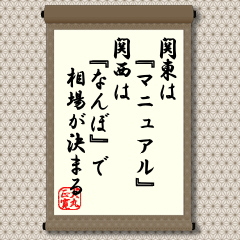 関東は
『マニュアル』
関西は
『なんぼ』で
相場が決まる